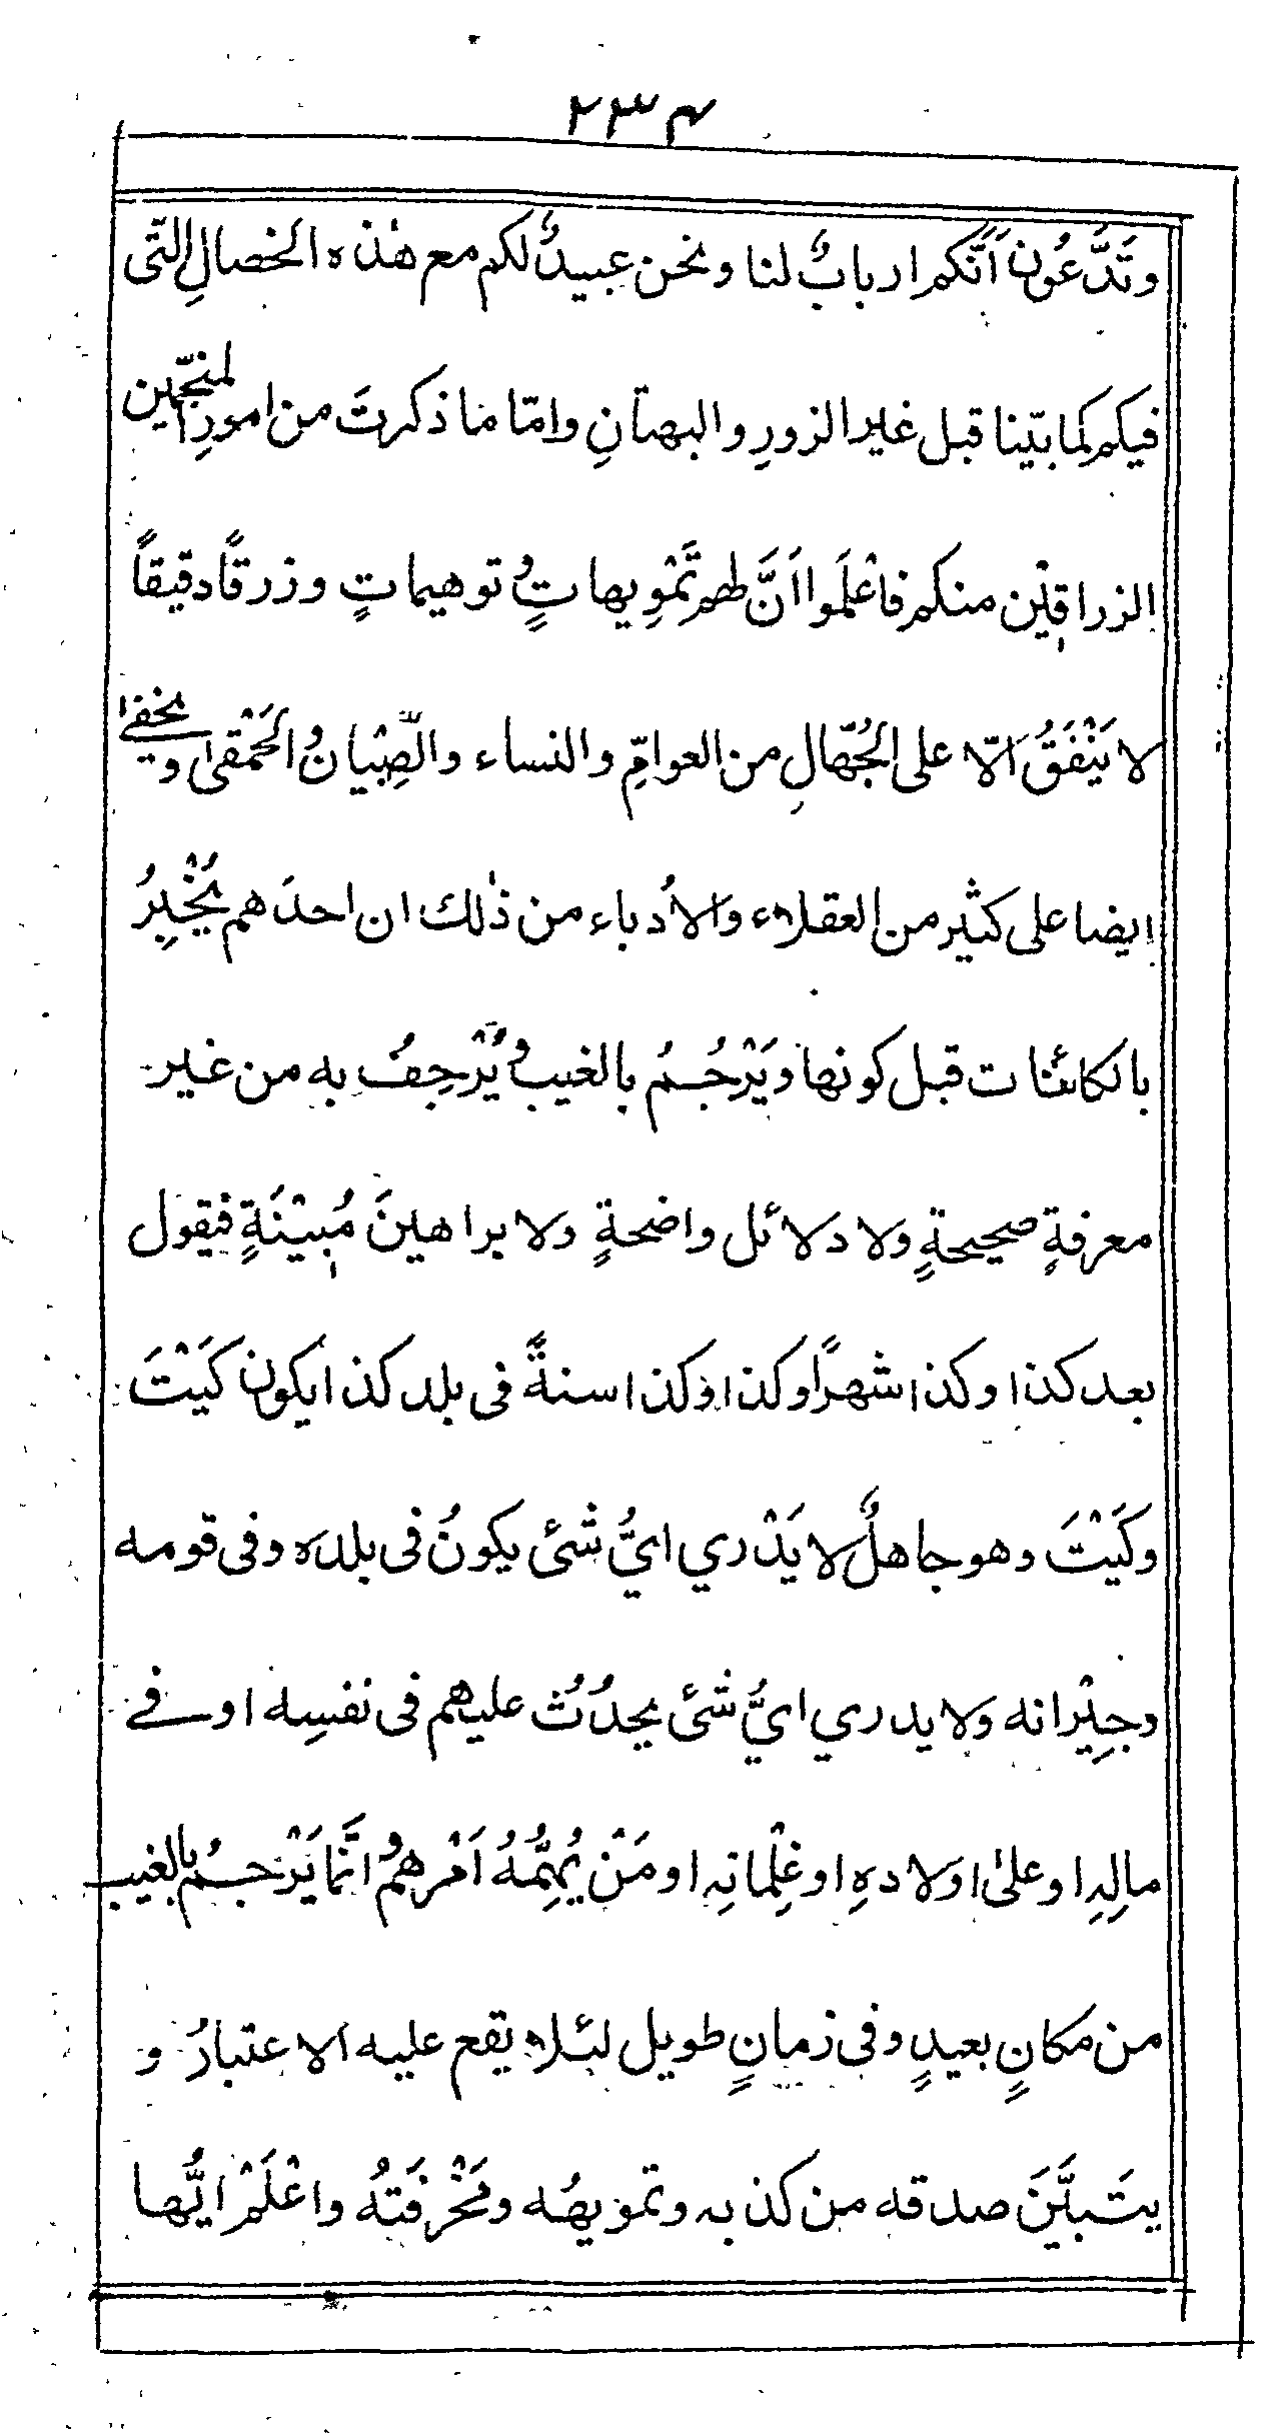 ٢٣٤
وتَدَّعُون اَنّكم اربابٌ لنا ونحن عبيدٌ لكم مع هٰذه الخصالِ التّى
فيكم كما بيّنا قبل غير الزورِ والبهتانِ وامّا ما ذكرتَ من امورِ المنجّمين
الزراقِيْن منكم فاعْلَموا اَنَّ لهم تَمْوِيهاتٍ وُتوهيماتٍ وزرقًا دقيقاً
لا يَنْفَقُ اَلّا على الجُهّالِ من العوامِّ والنساء والصِّبْيان وُالحَمْقىٰ ويخفى
ايضا على كثير من العقلاء والأدباء من ذٰلك ان احدَهم يُخْبِرُ
بالكائنات قبل كونها ويَرْجُمُ بالغيب وُيُرْجِفُ به من غير
معرفةٍ صحيحةٍ ولا دلائل واضحةٍ ولا براهينَ مُبِيْنَةٍ فيقول
بعد كذا وكذا شهرًا وكذا وكذا سنةً فى بلد كذا يكون كَيْتَ
وكَيْتَ وهو جاهلٌ لا يَدْري ايُّ شئ يكونُ فى بلده وفى قومه
وجِيْرانه ولا يدري ايُّ شئ يحدُثُ عليهم فى نفسِه او فى
مالِهِ او علىٰ اولادهِ او غِلْمانهِ او مَنْ يُهِمُّهُ اَمْرهمُ وانَّما يَرْجُمُ بالغيب
من مكانٍ بعيدٍ وفى زمانٍ طويل لئلا يقع عليه الاعتبارُ و
يتَبيَّنَ صدقه من كذبه وتمويهُه ومَخْرَفَتهُ واعْلَمْ ايُّها